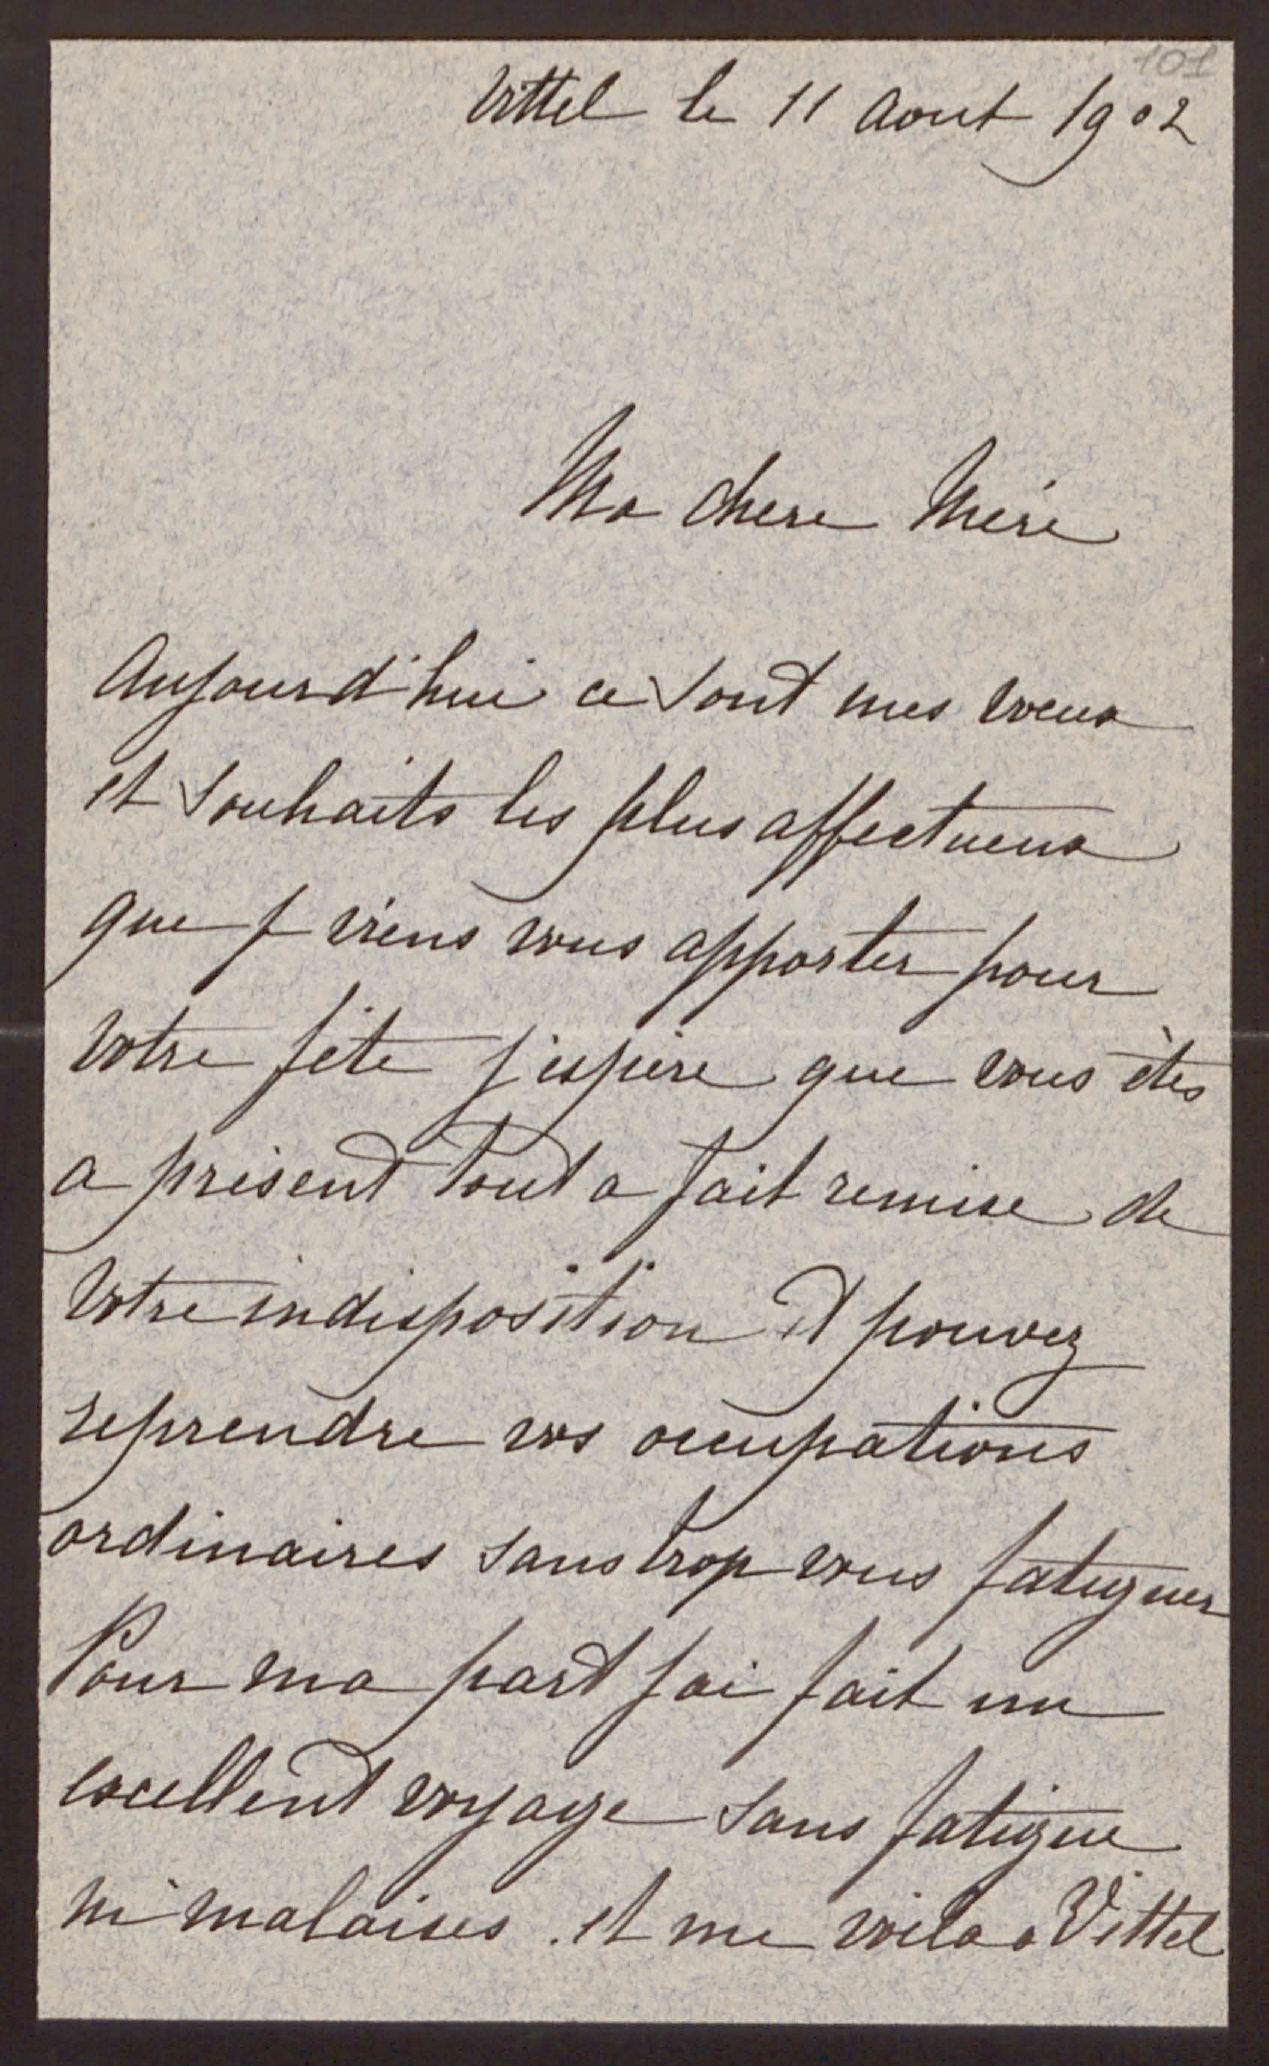 101
Vittel le 11 Aout 1902
Ma chere Mére
Aujourd'hui ce sont mes voeux
et souhaits les plus affectueux
que je viens vous apporter pour
votre fête j'espère que vous êtes
a présent tout a fait remise de
votre indisposition et pouvez
reprendre vos occupations
ordinaires sans trop vous fatiguer
Pour ma part j'ai fait un
excellent voyage sans fatigue
ni malaises. et me voila a Vittel